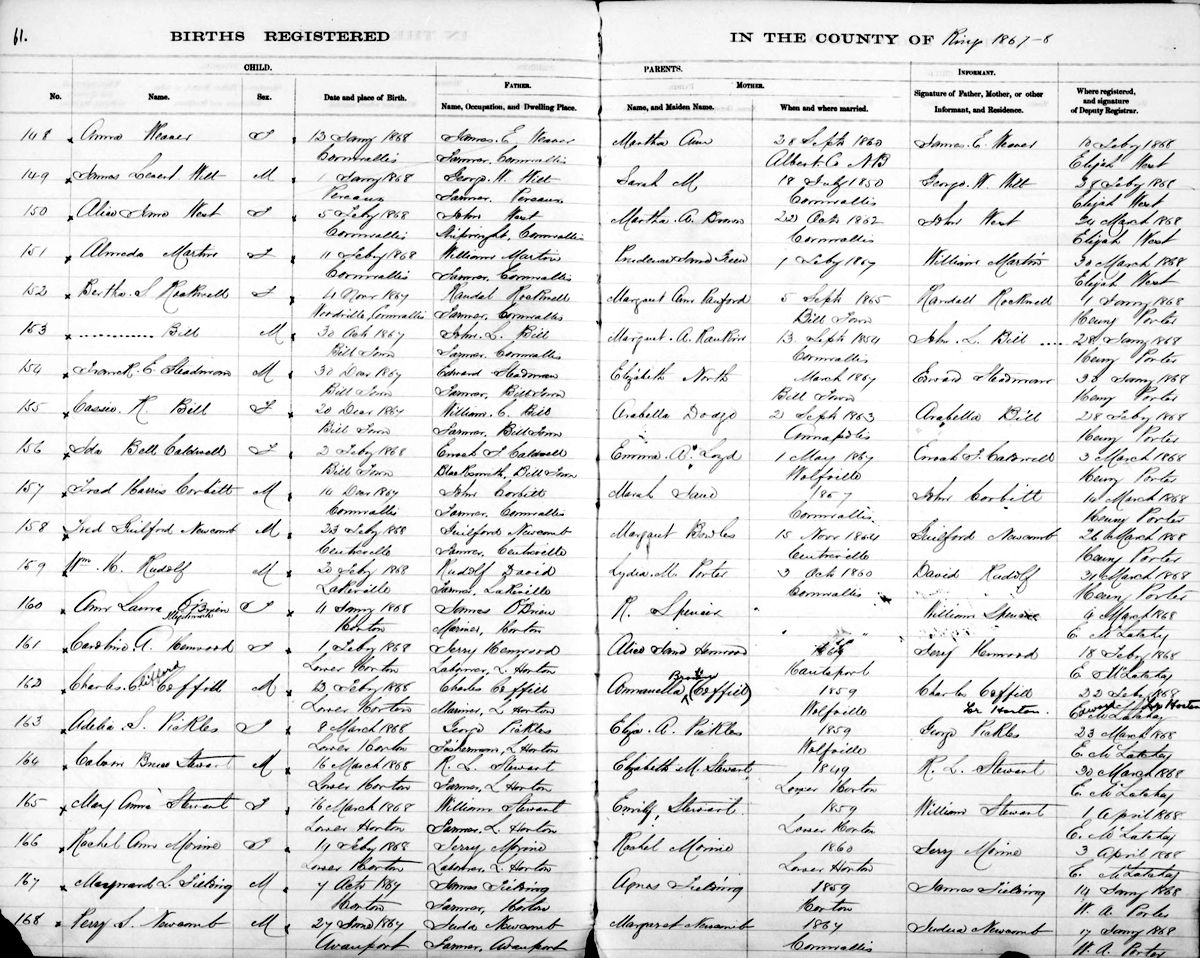 61.
BIRTHS REGISTERED IN THE COUNTY OF Kings 1867-8
CHILD. PARENTS. INFORMANT.
FATHER. MOTHER.
No. Name. Sex. Date and place of Birth. Name, Occupation, and Dwelling Place. Name, and Maiden Name. When and where married. Signature of Father, Mother, or other Informant, and Residence. Where registered, and signature of Deputy Registrar.
148 Anna Weaver F 13 Janry 1868 James E Weaver Martha Ann 28 Septr 1860 James E. Weaver 10 Feby 1868
Cornwallis Farmer, Cornwallis Albert Co NB Elijah West
149 James Wilt M 1 Janry 1868 George W. Wilt Sarah M 18 July 1850 George W. Wilt 28 Feby 1868
Pereaux Farmer, Pereaux Cornwallis Elijah West
150 Alice West F 5 Feby 1868 John West Martha A. Brown 22 Octr 1862 John West 24 March 1868
Cornwallis Cornwallis Cornwallis Elijah West
151 Almeda Martin F 11 Feby 1868 William Martin 1 Feby 1867 William Martin 30 March 1868
Cornwallis Farmer, Cornwallis Elijah West
152 Bertha S Rockwell F 4 Novr 1867 Randal Rockwell Margaret Ann 5 Septr 1865 Randall Rockwell 1 Janry 1868
Woodville, Cornwallis Farmer, Cornwallis Bill Town Henry Porter
153 ............ Bill M 30 Octr 1867 John L. Bill Margaret A. Rankin 13 Septr 1854 John L. Bill ..... 28 Janry 1868
Bill Town Farmer, Cornwallis Cornwallis Henry Porter
154 E Steadman M 30 Decr 1867 Edward Steadman Elizabeth North March 1867 Edward Steadman 28 Janry 1868
Bill Town Farmer, Bill Town Bill Town Henry Porter
155 Cassie R. Bill F 20 Decr 1867 William C. Bill Arabella Dodge 2 Septr 1863 Arabella Bill 28 Feby 1868
Bill Town Farmer, Bill Town Annapolis Henry Porter
156 Ida Bell Caldwell F 2 Feby 1868 Enoch F Caldwell Emma A. Loyd 1 May 1867 Enoch F. Caldwell 3 March 1868
Bill Town Blacksmith, Bill Town Wolfville Henry Porter
157 Fred Harris Corbitt M 14 Decr 1867 John Corbitt Mariah Jane 1857 John Corbitt 14 March 1868
Cornwallis Farmer, Cornwallis Cornwallis Henry Porter
158 Fred Guilford Newcomb M 23 Feby 1868 Guilford Newcomb Margaret Bowles 15 Novr 1864 Guilford Newcomb 26 March 1868
Centreville Farmer, Centreville Centreville Henry Porter
159 Wm. H. Rudolf M 20 Feby 1868 Rudolf David Lydia M. Porter 3 Octr 1860 David Rudolf 31 March 1868
Lakeville Farmer, Lakeville Cornwallis Henry Porter
160 Ann Laura O'Brien F 4 Janry 1868 James O'Brien R. Spencer " William Spencer 4 March 1868
Horton Mariner, Horton " E McLatchy
161 Caroline A. Henwood F 1 Feby 1868 Jerry Henwood Alice Henwood Jerry Henwood 18 Feby 1868
Lower Horton Laborer, L. Horton Hantsport E McLatchy
162 Charles Clifford Coffill M 13 Feby 1868 Charles Coffill Annanella (Coffill) 1859 Charles Coffill 22 Feby 1868
Lower Horton Mariner, L Horton Wolfville Lr Horton E McLatchy
163 Adelia S. Pickles F 8 March 1868 George Pickles Eliza A. Pickles 1859 George Pickles 23 March 1868
Lower Horton Fisherman, L Horton Wolfville E. McLatchy
164 Calvin Bruce Stewart M 16 March 1868 R. L. Stewart Elizabeth M. Stewart 1849 R. L. Stewart 30 March 1868
Lower Horton Farmer, L Horton Lower Horton E. McLatchy
165 Mary Anna Stewart F 16 March 1868 William Stewart Emily, Stewart 1859 William Stewart 1 April 1868
Lower Horton Farmer, L. Horton Lower Horton E. McLatchy
166 Rachel Ann Morine F 14 Feby 1868 Jerry Morine Rachel Morine 1860 Jerry Morine 3 April 1868
Lower Horton Laborer, L. Horton Lower Horton E. McLatchy
167 Maynard L. Fielding M 7 Octr 1867 James Fielding Agnes Fielding 1859 James Fielding 14 Janry 1868
Horton Farmer, Horton Horton W. A. Porter
168 Perry S. Newcomb M 27 1867 Juda Newcomb Margaret Newcomb 1867 Newcomb 17 Janry 1868
Avonport Farmer, Avonport Cornwallis W. A. Porter